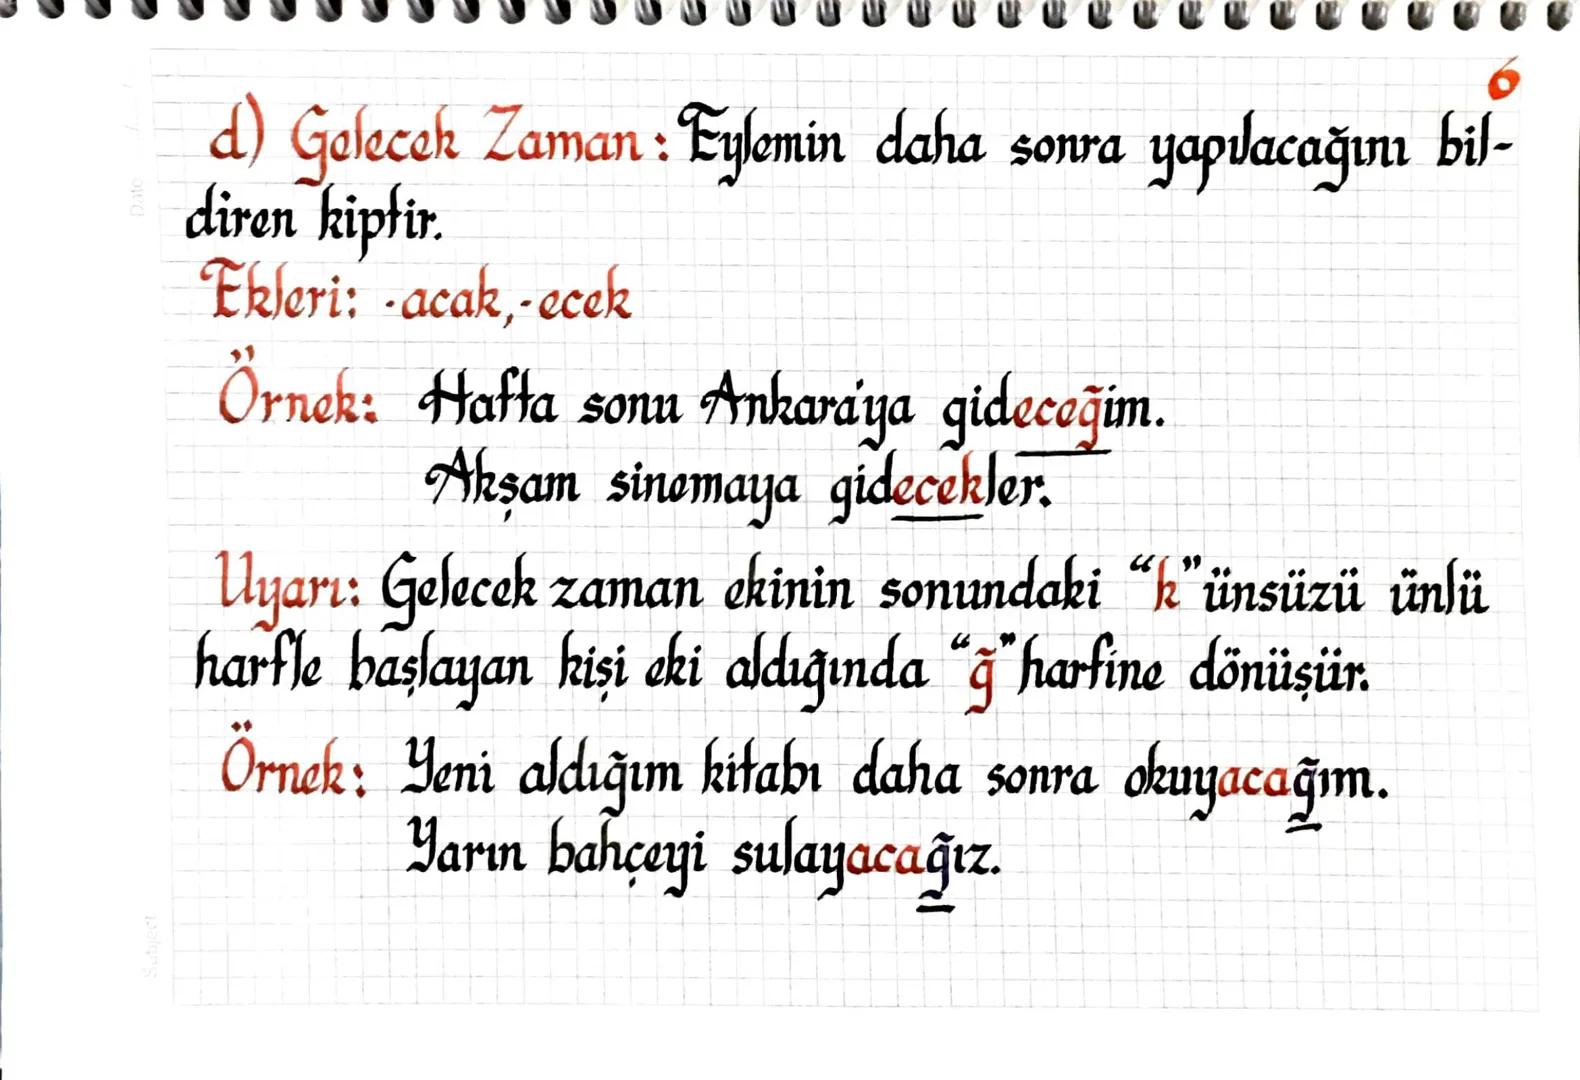 6
d) Gelecek Zaman: Eylemin daha sonra yapılacağını bil-
diren kiptir.
Ekleri: -acak, -ecek
Örnek: Hafta sonu Ankara'ya gideceğim.
Akşam sinemaya gidecekler.
Uyarı: Gelecek zaman ekinin sonundaki “k” ünsüzü ünlü
harfle başlayan kişi eki aldığında “ğ” harfine dönüşür.
Örnek: Yeni aldığım kitabı daha sonra okuyacağım.
Yarın bahçeyi sulayacağız.
Date
Subject